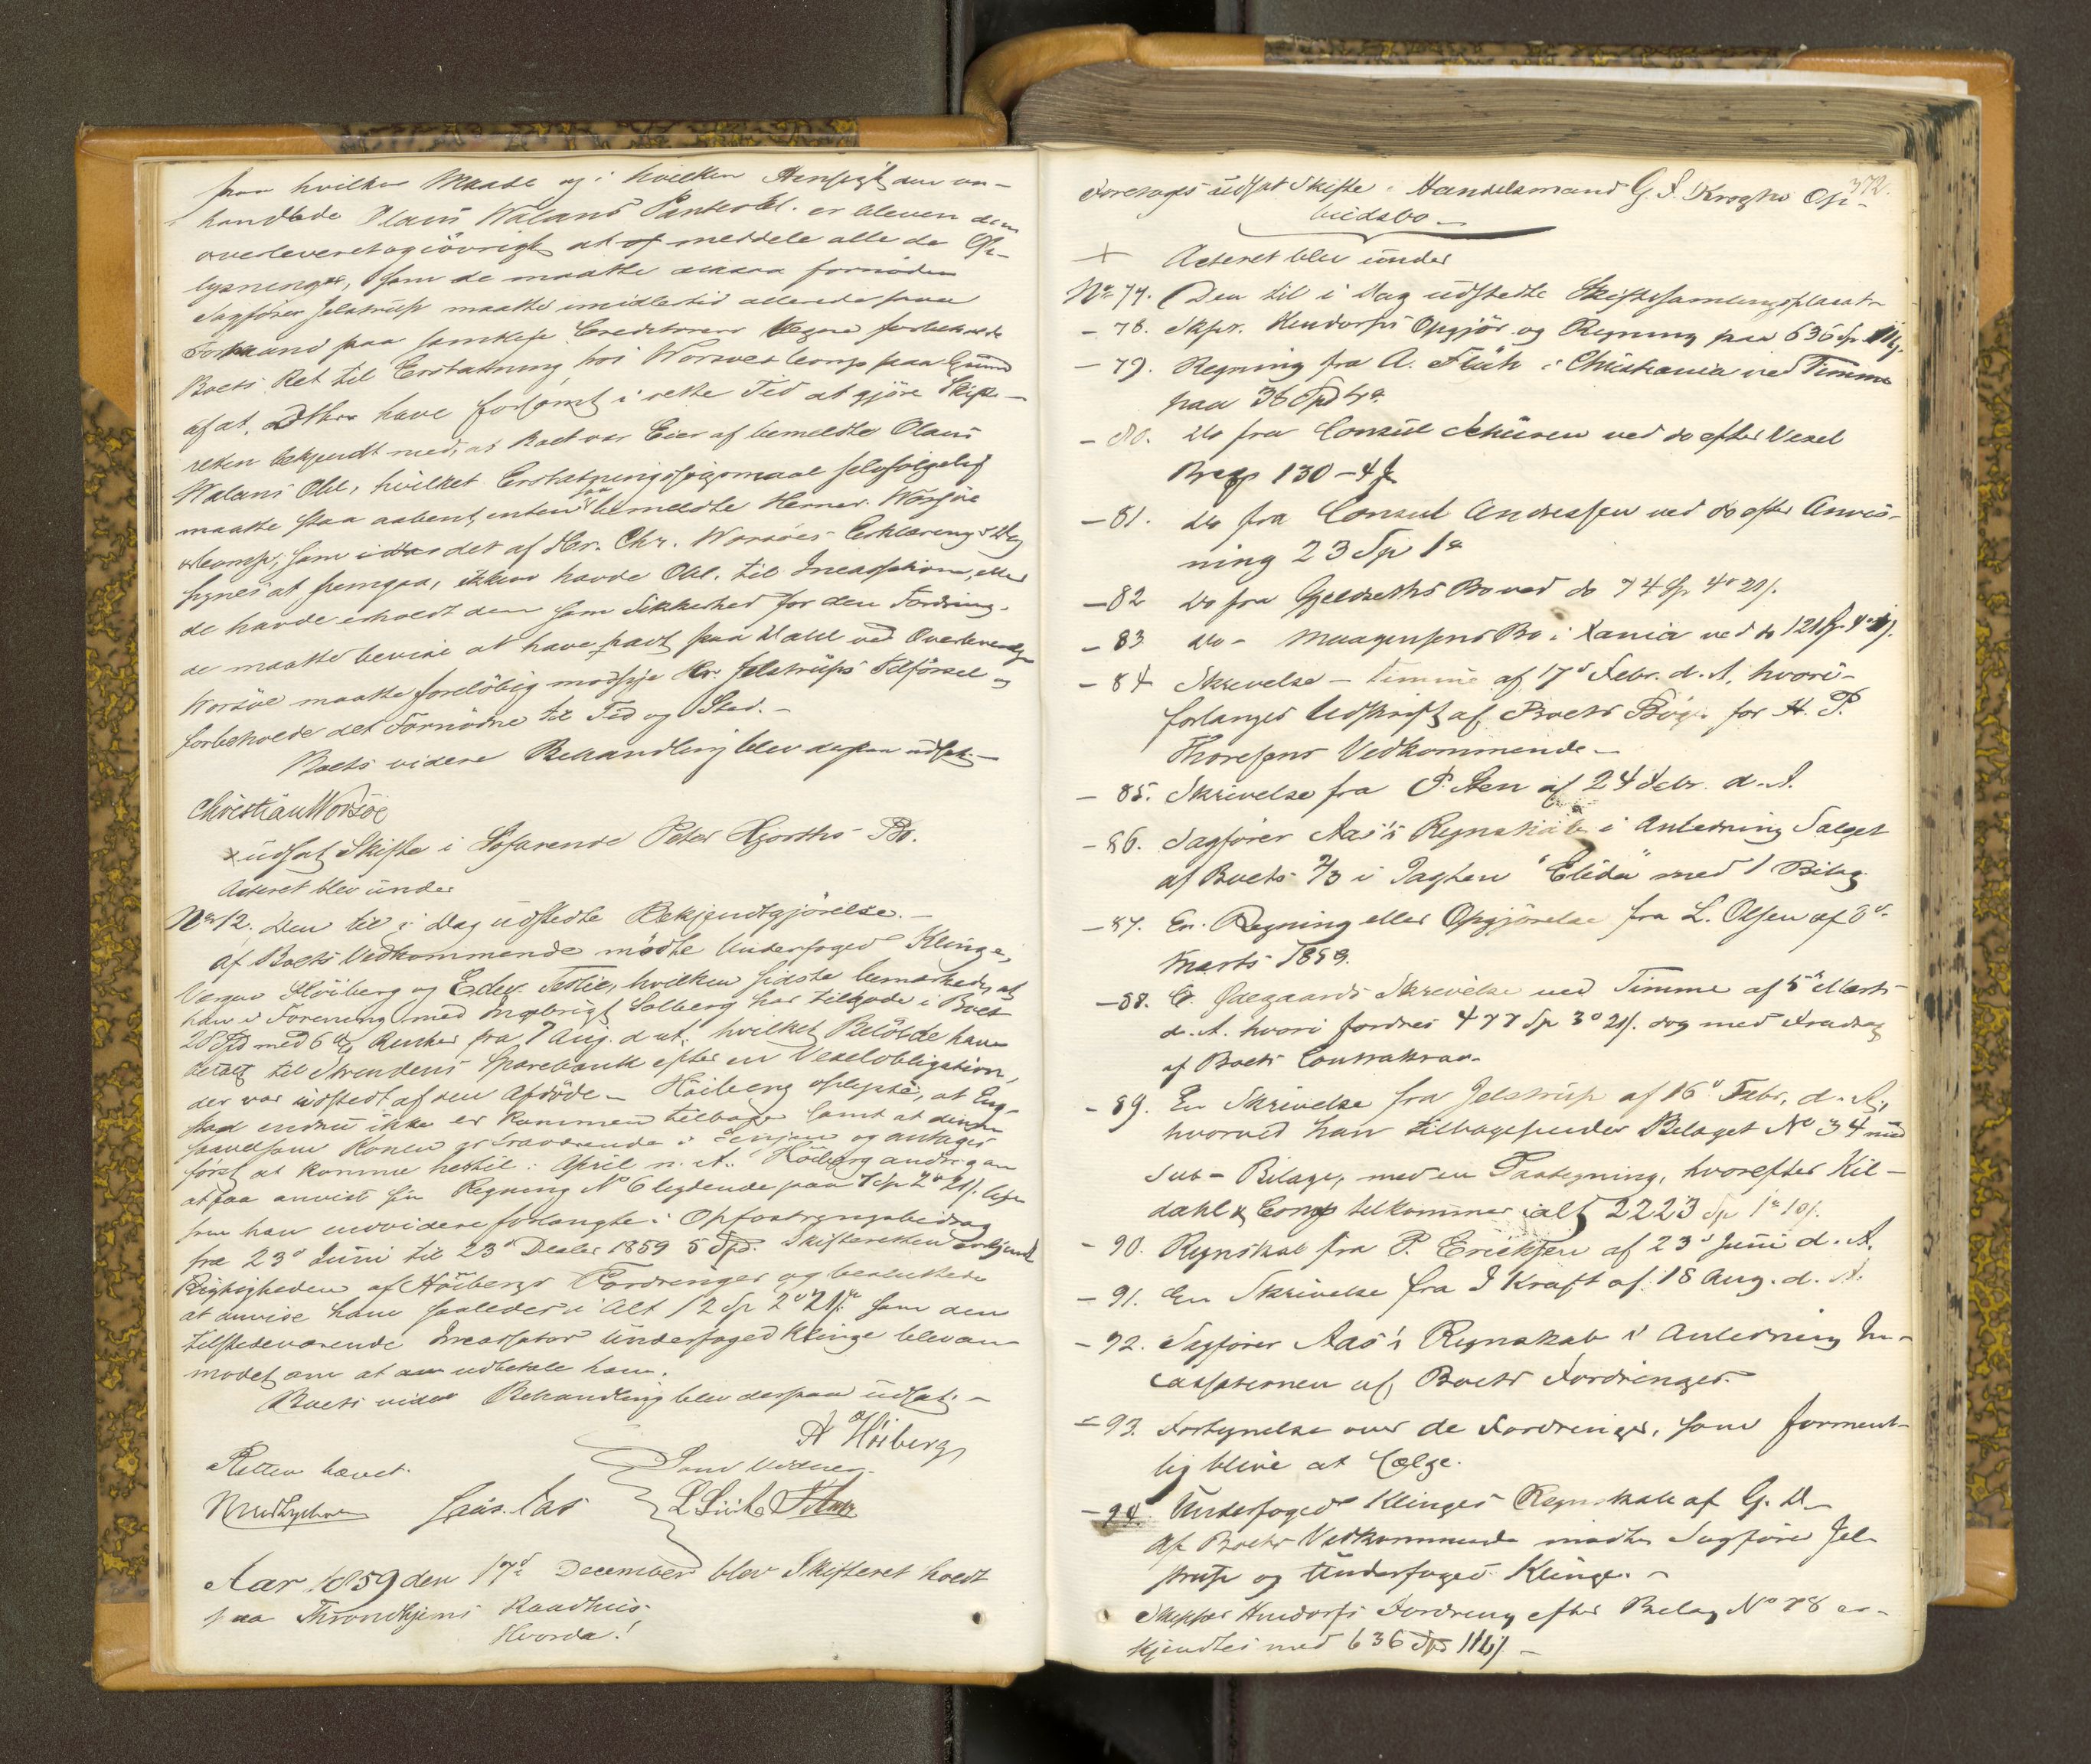 paa hvilken Maade og i hvilken Hensigt den om-
handlede Olaus Walans Panteobl. er bleven dem
overleveret og iøvrigt at meddele alle de Op-
lysninger, som de maatte ansee fornøden
Sagfører Jelstrup maatte imidlertid allerede
paa samtlige Creditorers Vegne forbeholde
Boets Ret til Erstatning hos Worsøe & Comp paa Grund
af at have forsømt i rette Tid at gjøre Skifte-
retten bekjendt med, at Boet var Eier af bemeldte Olaus
Walans Obl, hvilket Erstatningssøgsmaal selvfølgelig
maatte staa aabent, enten bemeldte Herrer Worsøe
& Comp, som det af Hr. Chr. Worsøes Erklæring i Dag
synes at fremgaa, ikkun havde Obl. til Incassation, eller
de havde erholdt den som Sikkerhed for den Fordring,
de maatte bevise at have havt paa Dahl ved Overleveringen
Worsøe maatte foreløbig modsige Hr. Jelstrups Tilførsel og
forbeholde det Fornødne til Tid og Sted.-
Boets videre Behandling blev derpaa udsat.-
Christian Worsøe
x udsat Skifte i Søfarende Peter Hjorths Bo.
Acteret blev under
No 12. Den til i Dag udstedte Bekjendtgjørelse.-
Af Boets Vedkommende mødte Underfoged Klinge,
Værgen Høiberg og Edev. Teslie, hvilken sidste bemærkede, at
han i Forening med Ingebrigt Solberg har tilgode i Boet
28 Spd med 6 % Renter fra 7 Aug. d. A. hvilket Beløb de have
betalt til Strindens Sparebank efter en Vexelobligation,
der var udstedt af den Afdøde.- Høiberg oplyste, at Eng-
stad endnu ikke er kommen tilbage samt at denne
saavelsom Konen er fraværende i Senjen og antages
først at komme hertil i April n. A. Høiberg androg om
at faa anvist sin Regning No 6 lydende paa 7 Sp 2 # 21 s. lige
som han endvidere forlangte i Opfostringsbidrag
fra 23d Juni til 23d Decbr 1859 5 Spd. Skifteretten erkjendte
Rigtigheden af Høibergs Fordringer og besluttede
at anvise ham saaledes i Alt 12 Sp 2 # 21 s som den
tilstedeværende Incassator Underfoged Klinge blev an-
modet om at udbetale ham.
Boets videre Behandling blev derpaa udsat.-
A Høiberg
Retten hævet.
Som Vidner
Aar 1859 den 17d December blev Skifteret holdt
paa Throndhjems Raadhuus
Hvorda!
372.
Foretoges udsat Skifte i Handelsmand G. F. Kroghs Opbudsbo
+ Acteret blev under
No 77. Den til i Dag udstedte Skiftesamlingsplacat
- 78. Skpr. Hendorfs Opgjør og Regning paa 636 Sp. 11 s.
- 79. Regning fra A. Fluk i Christiania ved Timme
paa 36 Spd 4 #.
- 80. Do fra Consul Schüren ved do efter Vexel
130 - 4
- 81. Do fra Consul Andressen ved do efter Anvis-
ning 23 Sp 1 #
- 82 Do fra Gjeldseths Bo ved do 74 Sp 4 # 21 s.
- 83 Do - Maagensens Bo i Xania ved do 121 Sp. 4 #
- 84 Skrivelse - Timme af 17d Febr. d. A. hvori
forlanges Udskrift af Boets Bøger for H. P.
Thoresens Vedkommende -
- 85. Skrivelse fra P. Aen af 24 Febr. d. A.
- 86. Sagfører Aas's Regnskab i Anledning Salget
af Boets 2/3 i Jagten "Elida" med 1 Bilag.
- 87. En Regning eller Opgjørelse fra L. Olsen af 8de
Marts 1859.
- 88. E. Ødegaards Skrivelse ved Timme af 5te Marts
d. A. hvori fordres 477 Sp 3 # 21 s. dog med Fradrag
af Boets Contrakrav.
- 89. En Skrivelse fra Jelstrup af 16d Febr. d. A.,
hvorved han tilbagesender Bilaget No 34 med
Sub-Bilage, med en Paategning, hvorefter Kil-
dahl & Comp tilkommer ialt 2223 Sp 1 # 10 s.
- 90. Regnskab fra P. Ericksen af 23d Juni d. A.
- 91. En Skrivelse fra J Kraft af 18 Aug. d. A.
- 92. Sagfører Aas's Regnskab i Anledning In-
cassationen af Boets Fordringer.
- 93. Fortegnelse over de Fordringer, som forment-
lig blive at sælge.
- 94. Underfoged Klinges Regnskab af G. D.
Af Boets Vedkommende mødte Sagfører Jel-
strup og Underfoged Klinge. -
Skipper Hendorfs Fordring efter Bilag No 78 er-
kjendtes med 636 Spd 11 s. -